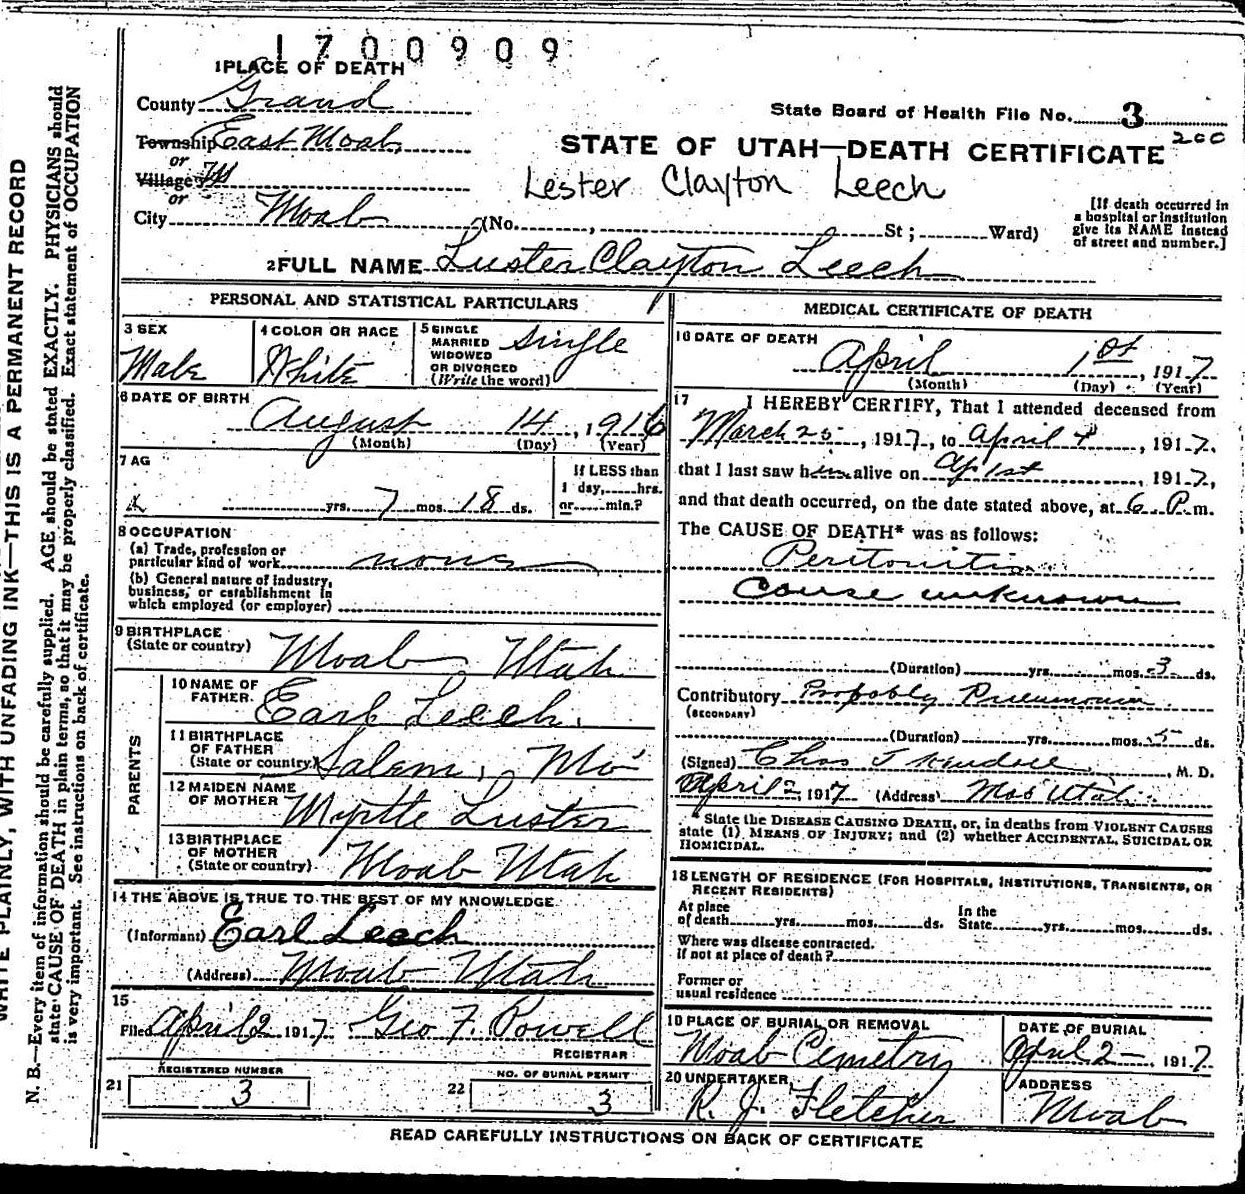 1700909
1 PLACE OF DEATH
County Grand
State Board of Health File No. 3
200
Township East Moab
STATE OF UTAH—DEATH CERTIFICATE
or
Village
Lester Clayton Leech
or
City Moab (No. , St ; Ward)
[If death occurred in
a hospital or institution
give its NAME instead
of street and number.]
2 FULL NAME Luster Clayton Leech
PERSONAL AND STATISTICAL PARTICULARS
3 SEX
Male
4 COLOR OR RACE
White
5 SINGLE
MARRIED
WIDOWED
OR DIVORCED
(Write the word)
Single
6 DATE OF BIRTH
August 14, 1916
(Month) (Day) (Year)
7 AG
yrs. 7 mos. 18 ds.
If LESS than
1 day, hrs.
or min.?
8 OCCUPATION
(a) Trade, profession or
particular kind of work none
(b) General nature of industry,
business, or establishment in
which employed (or employer)
9 BIRTHPLACE
(State or country) Moab Utah
PARENTS
10 NAME OF
FATHER Earl Leech.
11 BIRTHPLACE
OF FATHER
(State or country) Salem, Mo
12 MAIDEN NAME
OF MOTHER Myrtle Luster
13 BIRTHPLACE
OF MOTHER
(State or country) Moab Utah
14 THE ABOVE IS TRUE TO THE BEST OF MY KNOWLEDGE
(Informant) Earl Leech
(Address) Moab Utah
15
Filed April 2 1917 Geo F. Powell
REGISTRAR
REGISTERED NUMBER
21 3
NO. OF BURIAL PERMIT
22 3
MEDICAL CERTIFICATE OF DEATH
16 DATE OF DEATH
April 1st, 1917
(Month) (Day) (Year)
17 I HEREBY CERTIFY, That I attended deceased from
March 25, 1917, to April 1, 1917.
that I last saw him alive on Ap 1st, 1917,
and that death occurred, on the date stated above, at 6 P.m.
The CAUSE OF DEATH* was as follows:
Peritonitis
Cause unknown
(Duration) yrs. mos. 3 ds.
Contributory Propobly Pneumonia
(SECONDARY)
(Duration) yrs. mos. 5 ds.
(Signed) Chas J , M. D.
April 2, 1917 (Address) Moab Utah
*State the DISEASE CAUSING DEATH, or, in deaths from VIOLENT CAUSES
state (1) MEANS OF INJURY; and (2) whether ACCIDENTAL, SUICIDAL OR
HOMICIDAL.
18 LENGTH OF RESIDENCE (FOR HOSPITALS, INSTITUTIONS, TRANSIENTS, OR
RECENT RESIDENTS)
At place
of death yrs. mos. ds.
In the
State yrs. mos. ds.
Where was disease contracted.
if not at place of death?
Former or
usual residence
19 PLACE OF BURIAL OR REMOVAL
Moab Cemetry
DATE OF BURIAL
April 2, 1917
20 UNDERTAKER
R. J. Fletcher
ADDRESS
Moab
READ CAREFULLY INSTRUCTIONS ON BACK OF CERTIFICATE
WRITE PLAINLY, WITH UNFADING INK—THIS IS A PERMANENT RECORD
N. B.—Every item of information should be carefully supplied. AGE should be stated EXACTLY. PHYSICIANS should
state CAUSE OF DEATH in plain terms, so that it may be properly classified. Exact statement of OCCUPATION
is very important. See instructions on back of certificate.